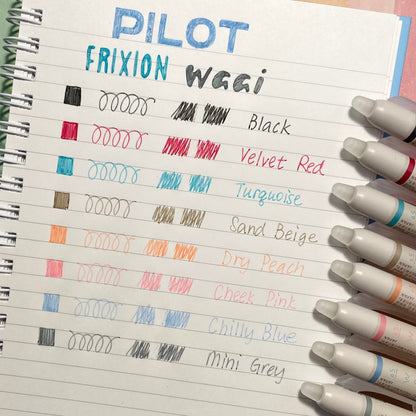 PILOT
FRIXION Waai
Black
Velvet Red
Turquoise
Sand Beige
Dry Peach
Cheek Pink
Chilly Blue
Mini Grey